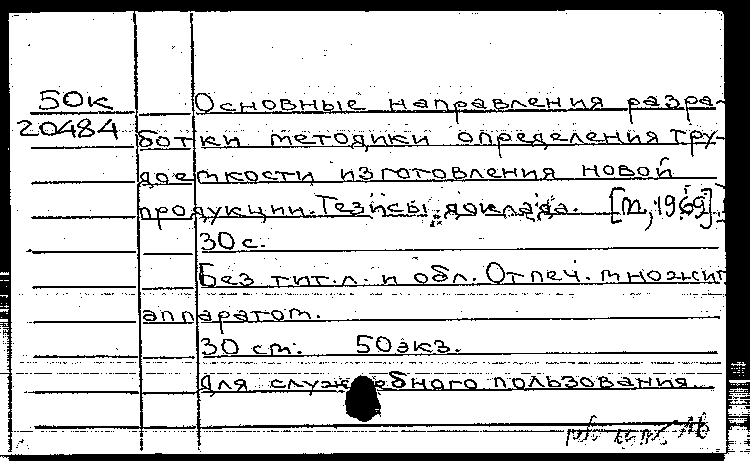 50к Основные направления разра-
20484 ботки методики определения тру-
доемкости изготовления новой
продукции. Тезисы доклада. [М, 1969].
30 с.
Без тит. л. и обл. Отпеч. множит
аппаратом.
30 см. 50 экз.
Для служебного пользования.